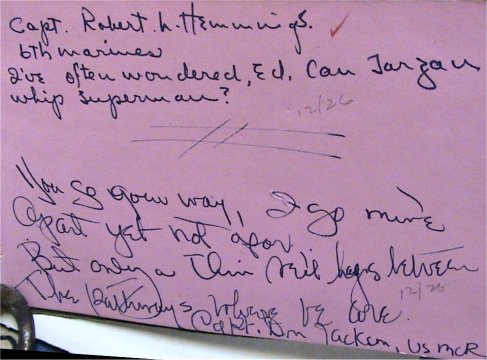 Capt. Robert L. Hemmings.
6th marines
I've often wondered, Ed, Can Tarzan
whip Superman?
12/26
You go your way, I go mine
Apart yet not afar.
But only a thin veil hangs between
The pathways where we are.
12/26
Capt. Jackson, USMCR